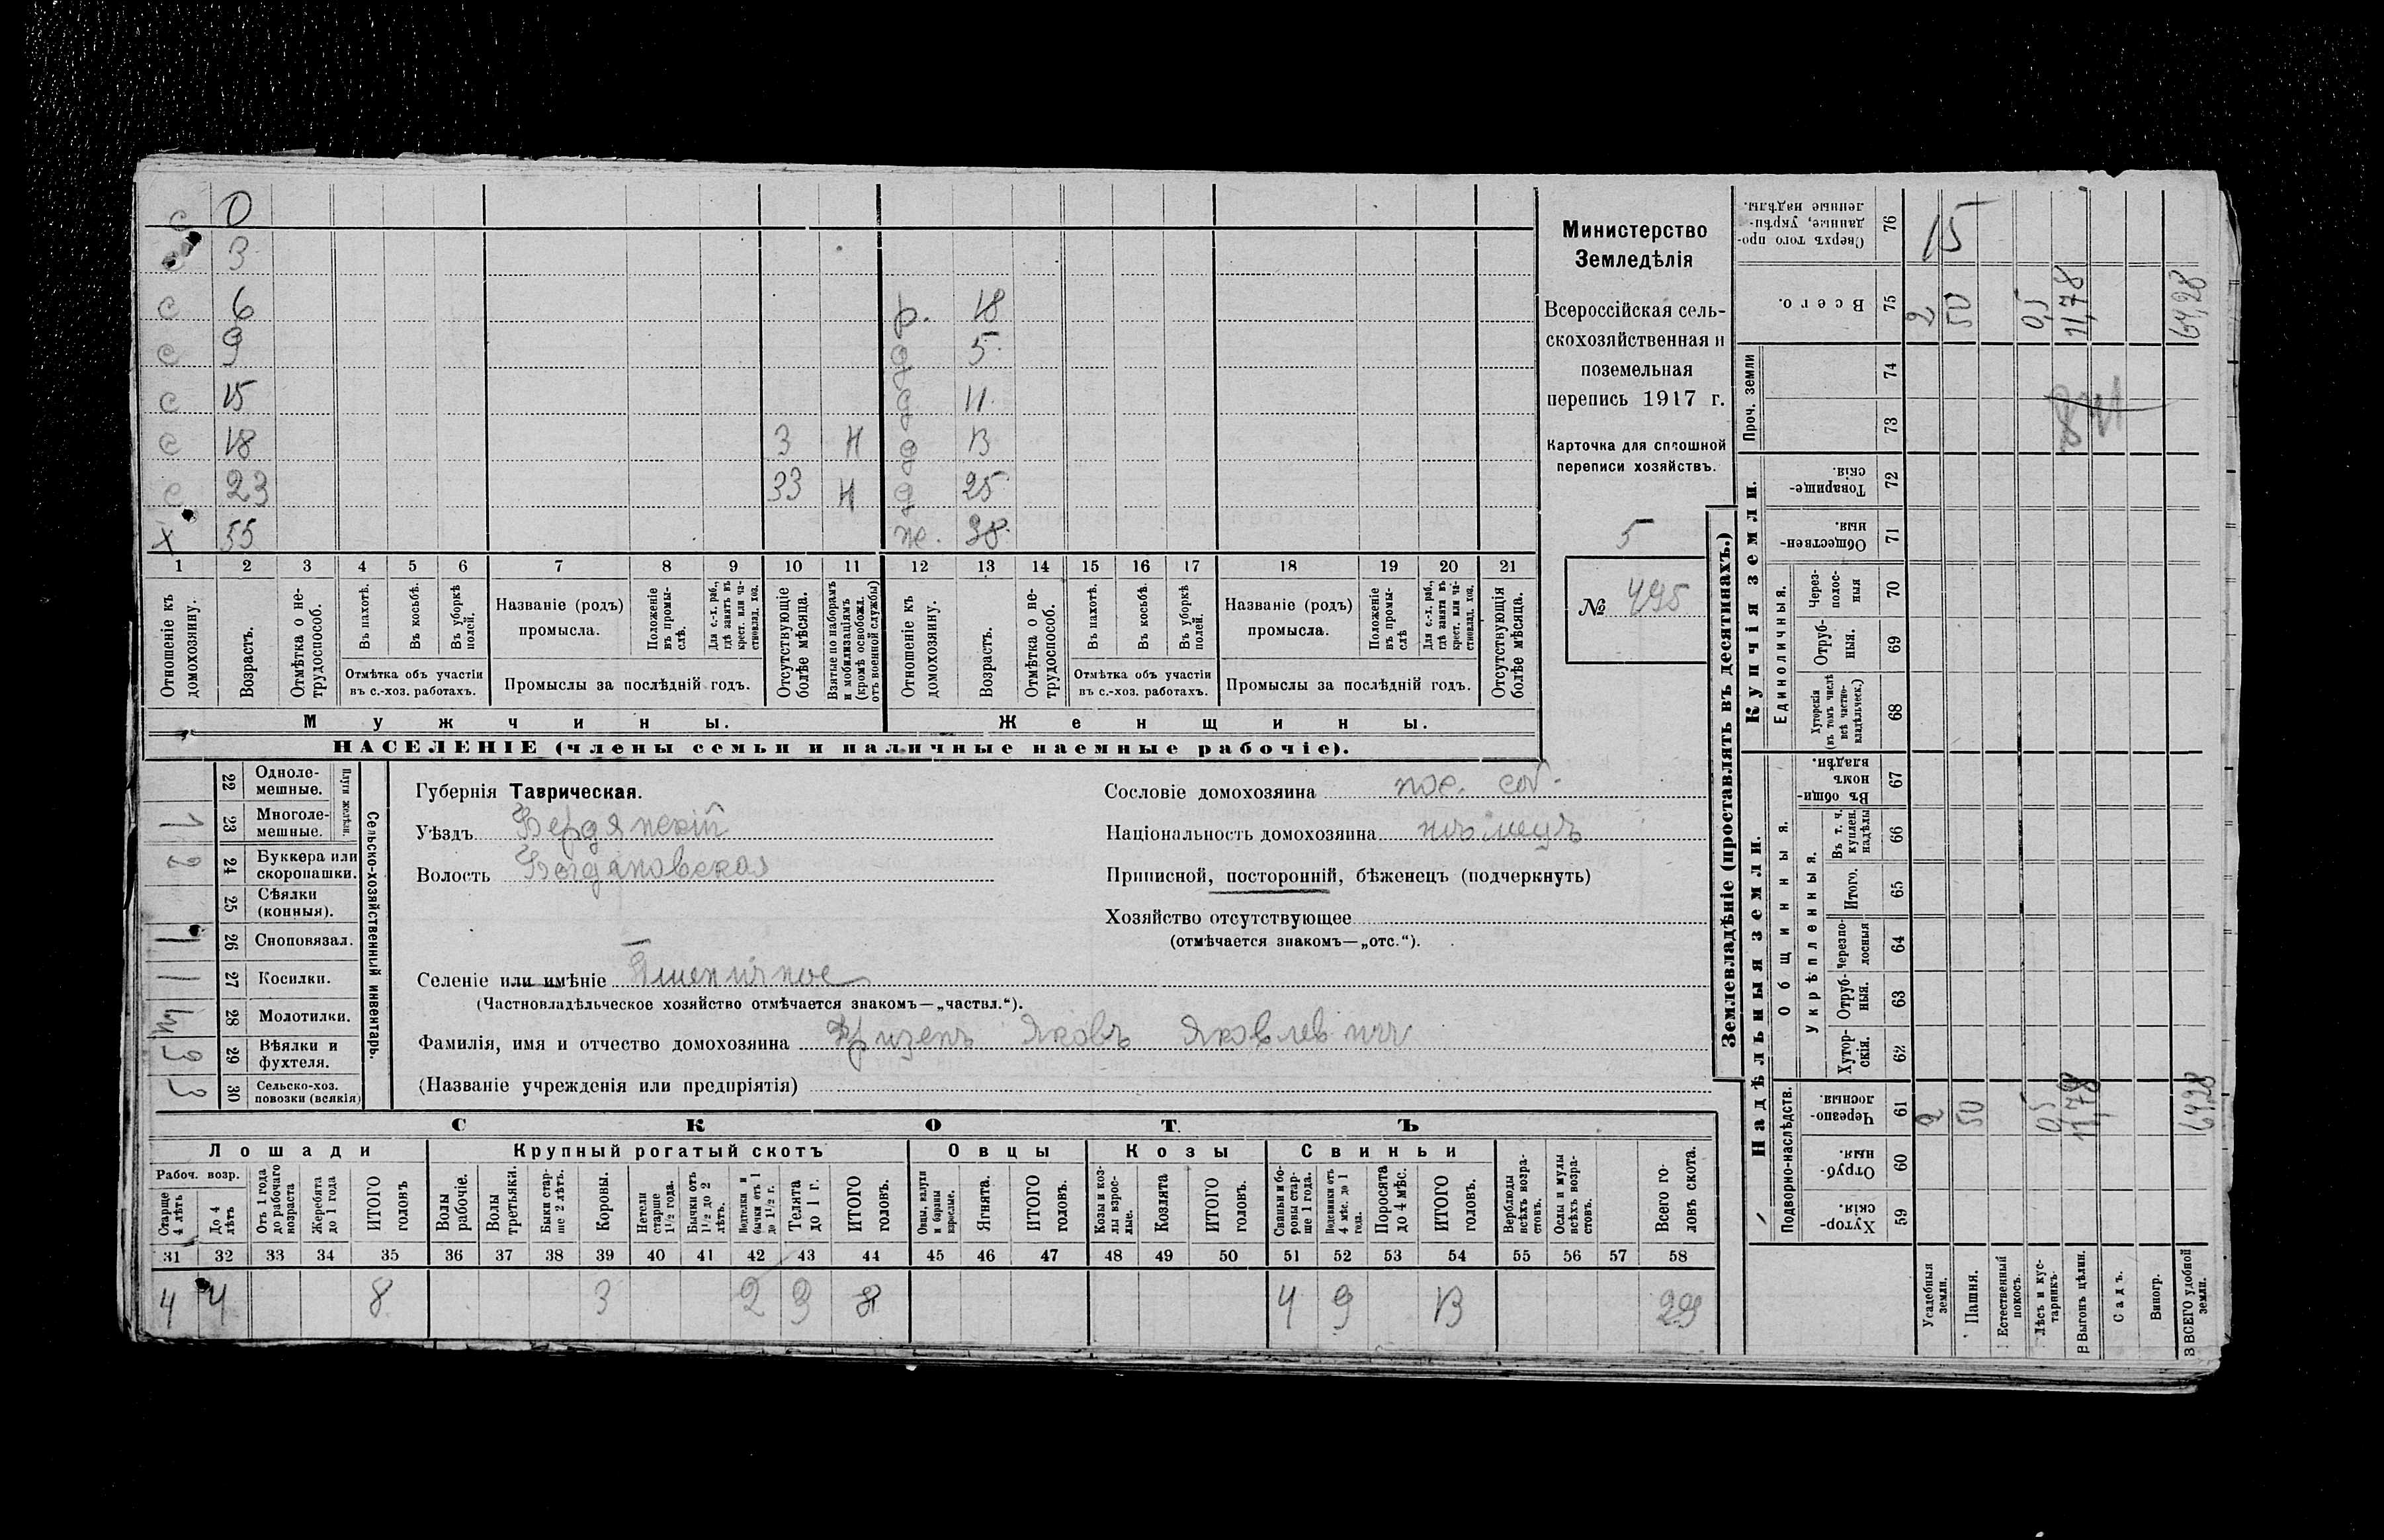 с 0
с 3
с 6 р. 18
с 9 д 5
с 15 д 11
с 18 3 Н д 13
с 23 33 Н д 25
х 55 ж. 38
1 2 3 4 5 6 7 8 9 10 11 12 13 14 15 16 17 18 19 20 21
Отношеніе къ домохозяину.
Возрастъ.
Отмѣтка о нетрудоспособ.
Въ пахотѣ.
Въ косьбѣ.
Въ уборкѣ полей.
Отмѣтка объ участіи въ с.-хоз. работахъ.
Названіе (родъ) промысла.
Положеніе въ промыслѣ.
Для с.-х. раб., гдѣ занятъ въ крест. или частновлад. хоз.
Промыслы за послѣдній годъ.
Отсутствующіе болѣе мѣсяца.
Взятые по наборамъ и мобилизаціямъ (кромѣ освобожд. отъ военной службы)
Отношеніе къ домохозяину.
Возрастъ.
Отмѣтка о нетрудоспособ.
Въ пахотѣ.
Въ косьбѣ.
Въ уборкѣ полей.
Отмѣтка объ участіи въ с.-хоз. работахъ.
Названіе (родъ) промысла.
Положеніе въ промыслѣ
Для с.-х. раб., гдѣ занята въ крест. или частновлад. хоз.
Промыслы за послѣдній годъ.
Отсутствующія болѣе мѣсяца.
Мужчины. Женщины.
НАСЕЛЕНІЕ (члены семьи и наличные наемные рабочіе).
Министерство
Земледѣлія
Всероссійская сель-
скохозяйственная и
поземельная
перепись 1917 г.
Карточка для сплошной
переписи хозяйствъ.
5
№ 495
Сельско-хозяйственный инвентарь.
Плуги желѣзн.
22 Одноле-мешные.
1 23 Многоле-мешные.
2 24 Буккера или скоропашки.
25 Сѣялки (конныя).
1 26 Сноповязал.
1 27 Косилки.
28 Молотилки.
3 29 Вѣялки и фухтеля.
3 30 Сельско-хоз. повозки (всякія)
Губернія Таврическая.
Уѣздъ Бердянскій
Волость Богдановская
Сословіе домохозяина пос. соб.
Національность домохозяина нѣмецъ
Приписной, посторонній, бѣженецъ (подчеркнуть)
Хозяйство отсутствующее
(отмѣчается знакомъ—„отс.“).
Селеніе или имѣніе Пшеничное
(Частновладѣльческое хозяйство отмѣчается знакомъ—„частвл.“).
Фамилія, имя и отчество домохозяина Фризенъ Яковъ Яковлевичъ
(Названіе учрежденія или предпріятія)
СКОТЪ
Лошади Крупный рогатый скотъ Овцы Козы Свиньи
Рабоч. возр.
Старше 4 лѣтъ
До 4 лѣтъ
Отъ 1 года до рабочаго возраста
Жеребята до 1 года
ИТОГО головъ
Волы рабочіе.
Волы третьяки.
Быки старше 2 лѣтъ.
Коровы.
Нетели старше 1½ года.
Бычки отъ 1½ до 2 лѣтъ.
Подтелки и бычки отъ 1 до 1½ г.
Телята до 1 г.
ИТОГО головъ.
Овцы, валухи и бараны взрослые.
Ягнята.
ИТОГО головъ.
Козы и козлы взрослые.
Козлята
ИТОГО головъ.
Свиньи и боровы старше 1 года.
Подсвинки отъ 4 мѣс. до 1 года.
Поросята до 4 мѣс.
ИТОГО головъ.
Верблюды всѣхъ возрастовъ.
Ослы и мулы всѣхъ возрастовъ.
Всего головъ скота.
31 32 33 34 35 36 37 38 39 40 41 42 43 44 45 46 47 48 49 50 51 52 53 54 55 56 57 58
4 4 8 3 2 3 8 4 9 13 29
Землевладѣніе (проставлять въ десятинахъ.)
Надѣльныя земли. Купчія земли.
Подворно-наслѣдств. Общинныя. Единоличныя. Проч. земли
Укрѣпленныя.
59 Хутор-скія.
60 Отруб-ныя.
61 Черезпо-лосныя.
62 Хутор-скія.
63 Отруб-ныя.
64 Черезпо-лосныя
65 Итого.
66 Въ т. ч. куплен. надѣлы
67 Въ общи-номъ владѣн.
68 Хуторскія (въ томъ числѣ всѣ частно-владѣльческ.)
69 Отруб-ныя.
70 Через-полос-ныя
71 Обществен-ныя.
72 Товарище-скія.
73
74
75 Всего.
76 Сверхъ того проданные, укрѣпленные надѣлы.
Усадебныя земли. 2 2
Пашня. 50 50 15
Естественный покосъ.
Лѣсъ и кустарникъ. 0,5 0,5
Выгонъ цѣлин. 11,78 11,78
Садъ.
Виногр.
ВСЕГО удобной земли. 64,28 64,28